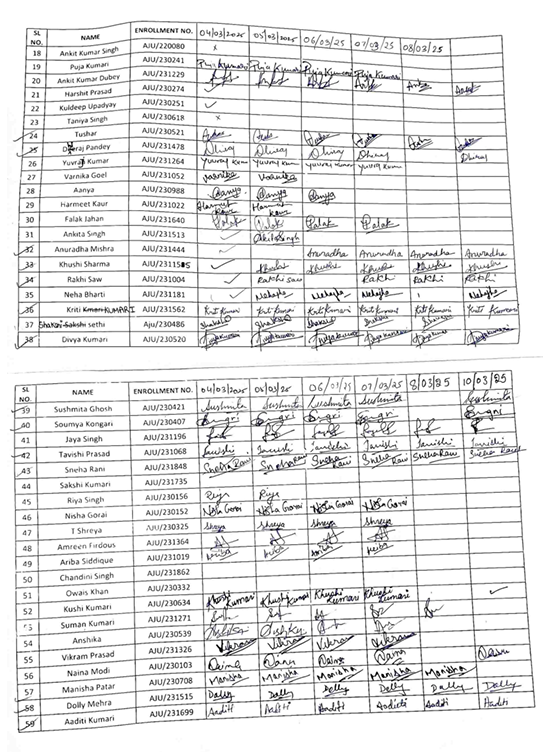 SL NO. NAME ENROLLMENT NO. 04/03/2025 05/03/2025 06/03/25 07/03/25 08/03/25
18 Ankit Kumar Singh AJU/220080 x
19 Puja Kumari AJU/230241 Puja Kumari Puja Kumari Puja Kumari Puja Kumari
20 Ankit Kumar Dubey AJU/231229
21 Harshit Prasad AJU/230274 ✓
22 Kuldeep Upadyay AJU/230251 ✓
23 Taniya Singh AJU/230618 x
24 Tushar AJU/230521
25 Dhiraj Pandey AJU/231478 Dhiraj Dhiraj Dhiraj Dhiraj Dhiraj
26 Yuvraj Kumar AJU/231264 Yuvraj Kum Yuvraj Kum Yuvraj Kum Yuvraj Kum
27 Varnika Goel AJU/231052 Varnika Varnika
28 Aanya AJU/230988 Aanya Aanya Aanya
29 Harmeet Kaur AJU/231022 Harmeet Kaur Harmeet Kaur
30 Falak Jahan AJU/231640 Falak Falak Falak Falak
31 Ankita Singh AJU/231513 ✓ Ankita Singh
32 Anuradha Mishra AJU/231444 ✓ Anuradha Anuradha Anuradha Anuradha
33 Khushi Sharma AJU/231155 ✓ Khushi Khushi Khushi Khushi Khushi
34 Rakhi Saw AJU/231004 ✓ Rakhi Saw Rakhi Rakhi
35 Neha Bharti AJU/231181 ✓
36 Kriti KUMARI AJU/231562 Kriti Kumari Kriti Kumari Kriti Kumari Kriti Kumari Kriti Kumari Kriti Kumari
37 Shakshi sethi Aju/230486
38 Divya Kumari AJU/230520
SL NO. NAME ENROLLMENT NO. 04/03/2025 05/03/25 06/03/25 07/03/25 8/03/25 10/03/25
39 Sushmita Ghosh AJU/230421 Sushmita Sushmita Sushmita Sushmita Sushmita
40 Soumya Kongari AJU/230407
41 Jaya Singh AJU/231196
42 Tavishi Prasad AJU/231068 Tavishi Tavishi Tavishi Tavishi Tavishi Tavishi
43 Sneha Rani AJU/231848 Sneha Rani Sneha Rani Sneha Rani Sneha Rani Sneha Rani Sneha Rani
44 Sakshi Kumari AJU/231735
45 Riya Singh AJU/230156 Riya Riya
46 Nisha Gorai AJU/230152 Nisha Gorai Nisha Gorai Nisha Gorai Nisha Gorai
47 T Shreya AJU/230325 Shreya Shreya Shreya Shreya
48 Amreen Firdous AJU/231364
49 Ariba Siddique AJU/231019 Ariba Ariba Ariba Ariba
50 Chandini Singh AJU/231862
51 Owais Khan AJU/230332 ✓
52 Kushi Kumari AJU/230634 Khushi Kumari Khushi Kumari Khushi Kumari Khushi Kumari
53 Suman Kumari AJU/231271
54 Anshika AJU/230539
55 Vikram Prasad AJU/231326 Vikram Vikram Vikram Vikram
56 Naina Modi AJU/230103 Naina Naina Naina Naina Naina
57 Manisha Patar AJU/230708 Manisha Manisha Manisha Manisha Manisha
58 Dolly Mehra AJU/231515 Dolly Dolly Dolly Dolly Dolly Dolly
59 Aaditi Kumari AJU/231699 Aaditi Aaditi Aaditi Aadicti Aaditi Aaditi